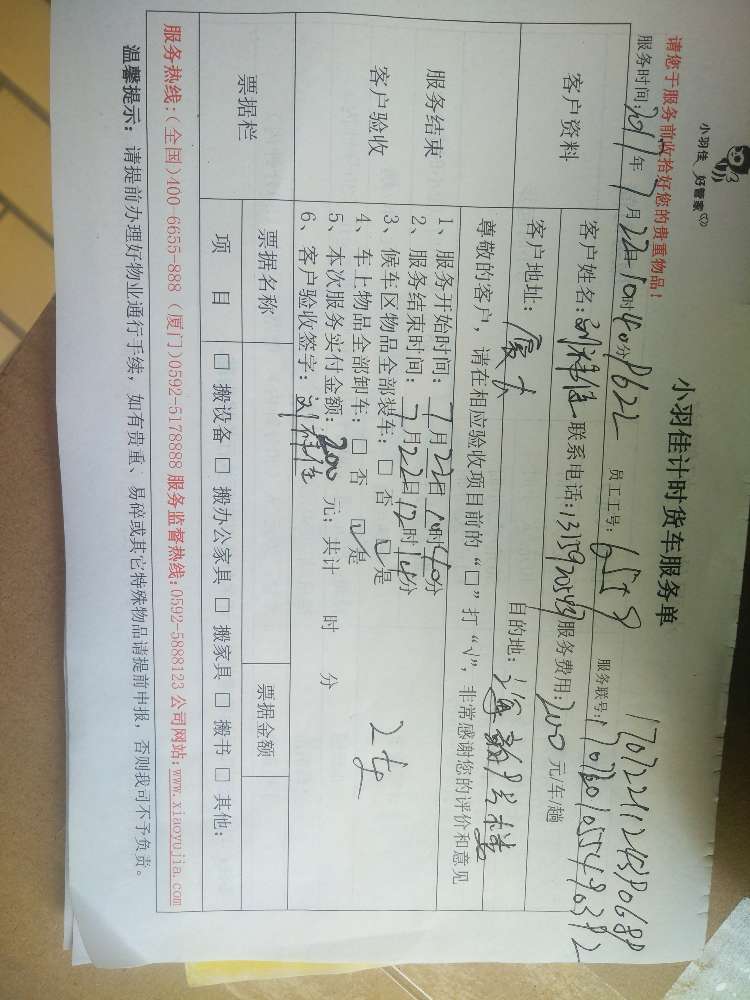 小羽佳 好管家
小羽佳计时货车服务单
请您于服务前收拾好您的贵重物品！
服务时间：2017年7月22日10时40分 员工工号： 服务联号：
客户资料
客户姓名： 联系电话： 服务费用：200元/车/趟
客户地址： 目的地：
尊敬的客户，请在相应验收项目前的“□”打“√”，非常感谢您的评价和意见
服务结束
客户验收
1、服务开始时间：7月22日10时40分
2、服务结束时间：7月22日12时10分
3、候车区物品全部装车：□ 否 ☑是
4、车上物品全部卸车：□ 否 ☑是
5、本次服务实付金额：200 元；共计 时 分
6、客户验收签字：
票据栏
票据名称 票据金额
项 目 □ 搬设备 □ 搬办公家具 □ 搬家具 □ 搬书 □ 其他：
服务热线：（全国）400-6655-888（厦门）0592-5178888 服务监督热线：0592-5888123 公司网站：www.xiaoyujia.com
温馨提示：请提前办理好物业通行手续，如有贵重、易碎或其它特殊物品请提前申报，否则我司不予负责。